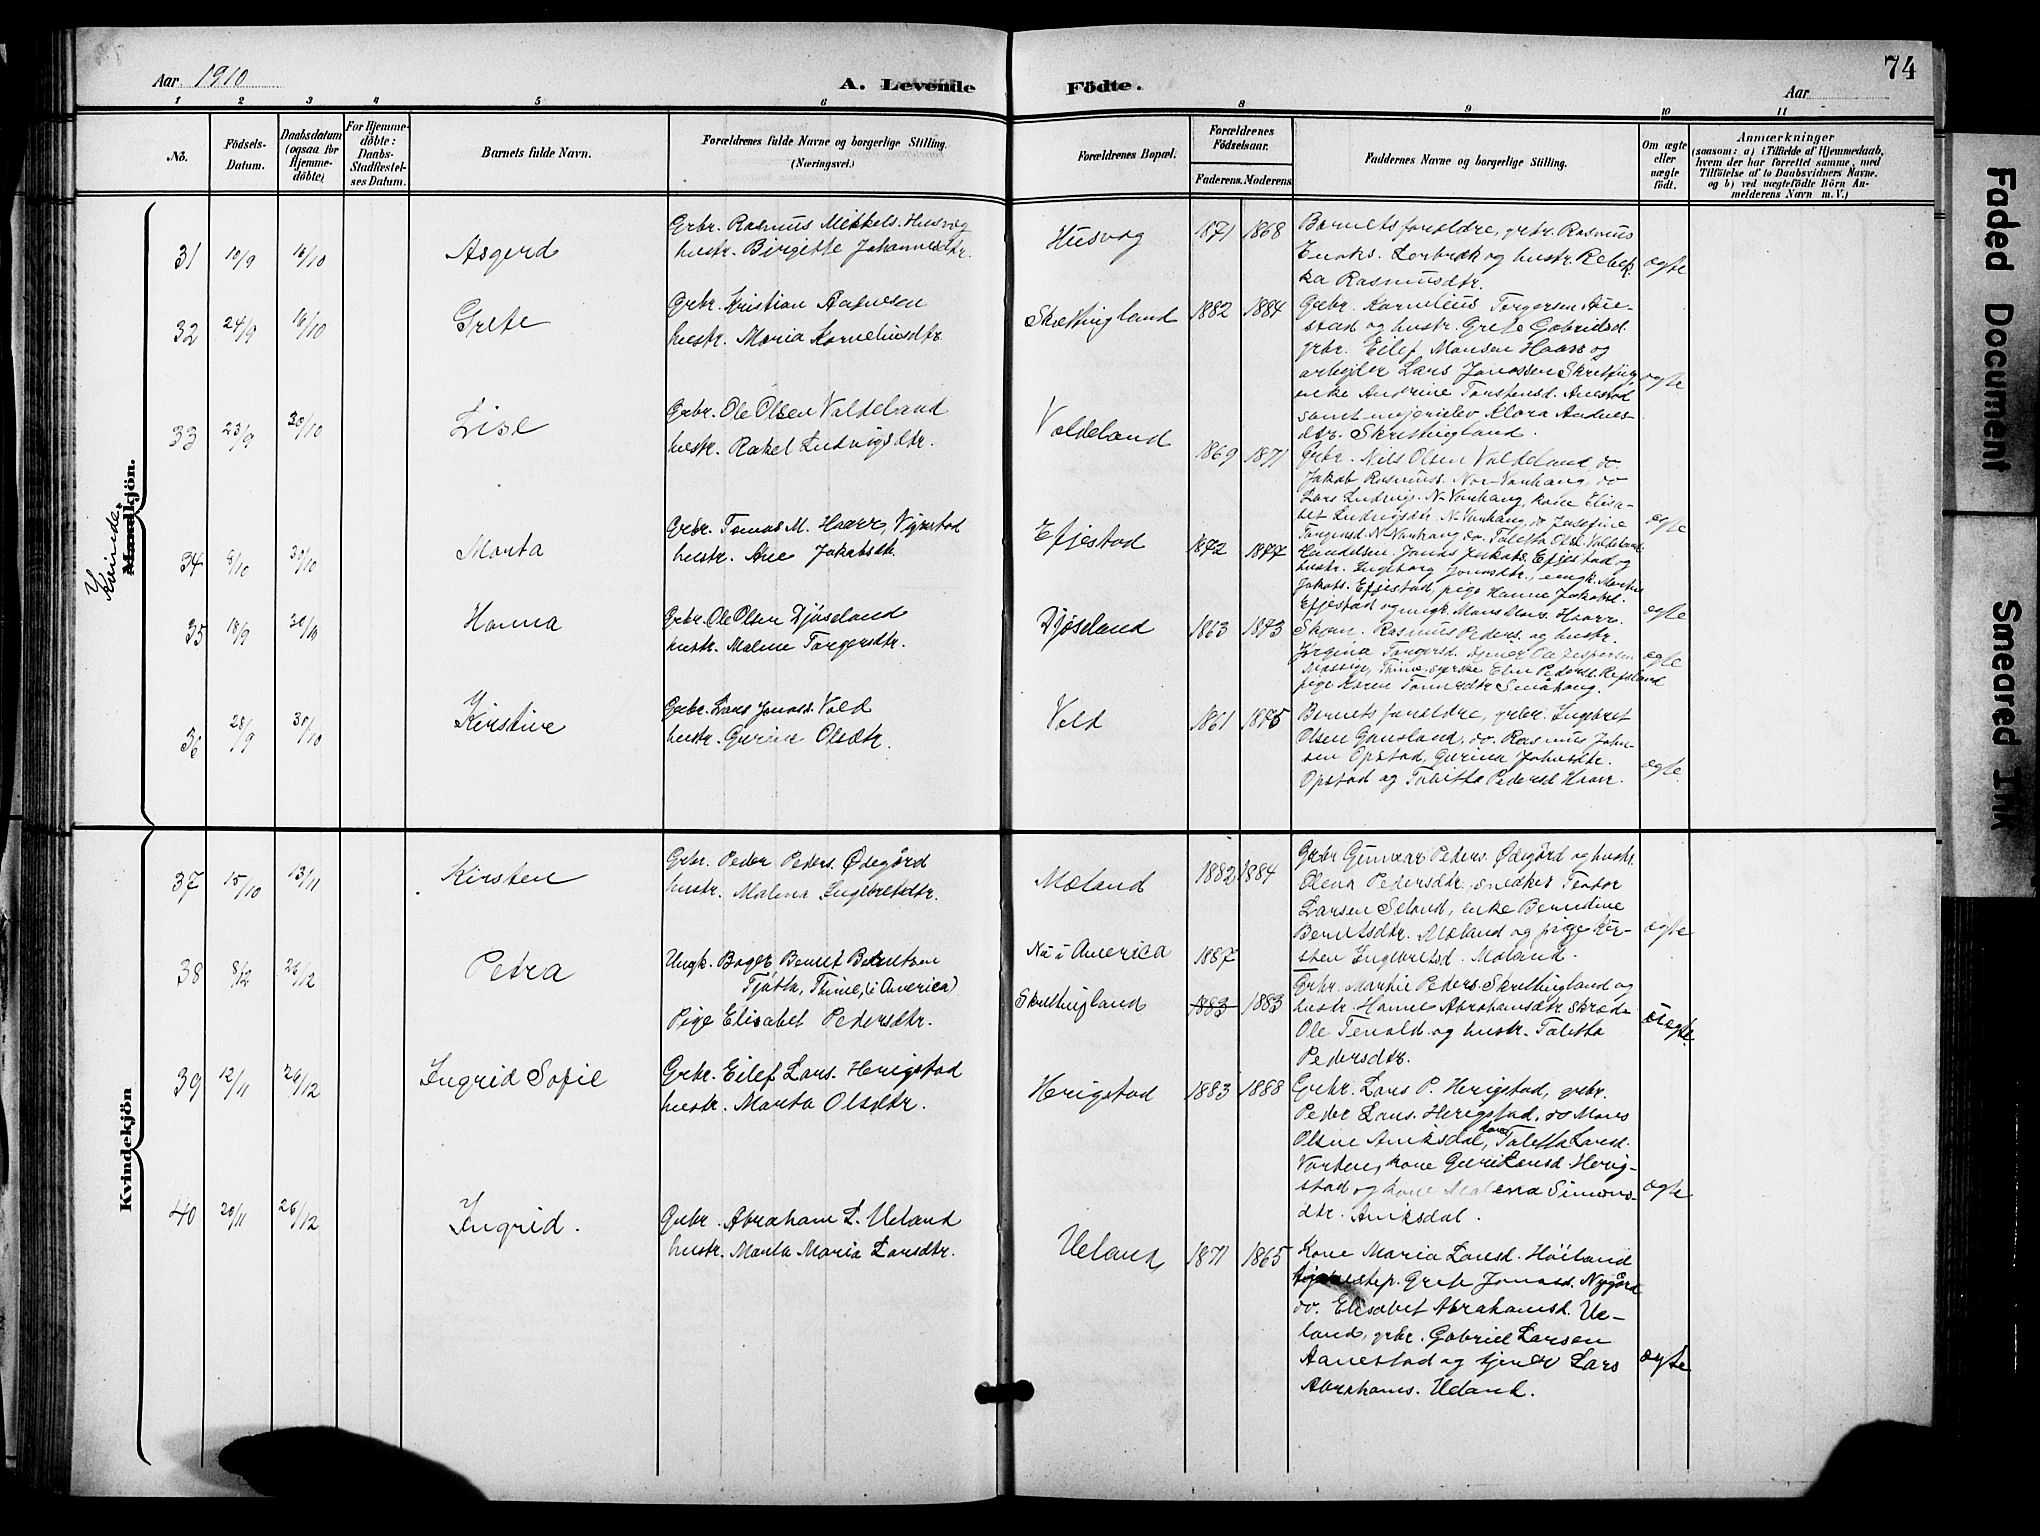 Aar 1910
A. Levende Födte.
74
Aar
1 2 3 4 5 6 8 9 10 11
No.
Födsels-Datum.
Daabsdatum (ogsaa for Hjemme-döbte)
For Hjemme-döbte: Daabs-Stadfæstel-ses Datum.
Barnets fulde Navn.
Forældrenes fulde Navne og borgerlige Stilling. (Næringsvei.)
Forældrenes Bopæl.
Forældrenes Födselsaar.
Faderens. Moderens.
Faddernes Navne og borgerlige Stilling.
Om ægte eller uægte födt.
Anmærkninger
(saasom: a) i Tilfælde af Hjemmedaab, hvem der har forrettet samme, med Tilföielse af to Daabsvidners Navne. og b) ved uægtefödte Börn An-melderens Navn m. V.)
Kvinde.
Mandkjön.
31 10/9 16/10 Asgerd
Grbr. Rasmus Mikkels. Husvog
hustr. Birgitte Johannesdtr.
Husvog 1871 1868
Barnets foreldre, grbr. Rasmus
Enoks. Lerbrek og hustr. Rebek-
ka Rasmusdtr.
egte
32 24/9 16/10 Grete
Grbr. Kristian
hustr. Maria Korneliusdtr.
Skrettingland 1882 1884
Grbr. Kornelius Torgersen Ane-
stad og hustr. Grete Gabrielsd.
grbr. Eilef Monsen Haarr og
arbejder Lars Jonassen Skretting,
enke Andrine Torstensd. Anestad
samt mejerielev Klara Andreas-
dtr. Skrettingland.
egte
33 23/9 30/10 Lise
Grbr. Ole Olsen Valdeland
hustr. Rakel Ludvigsdtr.
Valdeland 1869 1871
Grbr. Nils Olsen Valdeland, do.
Jakob Rasmuss. Nor-Varhaug, do
Lars Ludvigs. N-Varhaug, kone Elisa-
bet Ludvigsdtr. N-Varhaug, do Josefine
Torgersd. N-Varhaug do. Taletta Olsd. Valdeland
egte
34 8/10 30/10 Marta
Grbr. Tomas M. Haarr, Vigrestad
hustr. Ane Jakobsdtr.
Efjestad 1872 1877
Handelsm. Jonas Jakobs. Efjestad og
hustr. Ingeborg Jonasdtr., ungk. Martin
Jakobs. Efjestad, pige Hanne Jakobsd.
Efjestad og ungk. Mons Mons. Haarr.
egte
35 18/9 30/10 Hanna
Grbr. Ole Olsen Djøseland
hustr. Malene Torgersdtr.
Djøseland 1863 1873
Skom. Rasmus Peders. og hustr.
Jørgina Torgersd. tjener Ole Jespersen
Time, syerske Elen Pedersd. Refsland
pige Karen Tonnesdtr. Småhaug.
egte
36 28/9 30/10 Kirstine
Grbr. Lars Jonass. Vold
hustr. Gurine Olsdtr.
Vold 1861 1875
Barnets foreldre, grbr. Ingebret
Olsen Gausland, do. Rasmus John-
sen Opstad, Gurina Johnsdtr.
Opstad og Tabitta Pedersd Haarr.
egte
Kvindekjön
37 15/10 13/11 Kirsten
Grbr. Peder Peders. Ødegård
hustr. Malena Ingebretsdtr.
Mæland 1882 1884
Grbr Gunnar Peders. Ødegård og hustr.
Olena Pedersdtr, snedker Teodor
Larsen Seland, enke Berndine
Berntsdtr. Mæland og pige Kir-
sten Ingebretsd. Mæland.
egte
38 8/12 26/12 Petra
Ungk. Bager Bernt Berntsen
Tjøtta, Thime, (i America)
Pige Elisabet Pedersdtr.
Nu i America 1887
Skrettingland 1883 1883
Grbr. Martin Peders. Skrettingland og
hustr. Hanne Abrahamsdtr. Skræder
Ole Tenold og hustr. Taletta
Pedersdtr.
uegte
39 12/11 26/12 Ingrid Sofie
Grbr. Eilef Lars. Herigstad
hustr. Marta Olsdtr.
Herigstad 1883 1888
Grbr. Lars P. Herigstad, grbr.
Peder Lars. Herigstad, do Mons
Olsen Aniksdal, kone Taletta Larsd.
Varten, kone Guri Larsd. Herig-
stad og kone Malena Simons-
dtr. Aniksdal.
egte
40 20/11 26/12 Ingrid.
Grbr. Abraham L. Ueland
hustr. Marta Maria Larsdtr.
Ueland, 1871 1865
Kone Maria Larsd. Høiland
tjenestep. Grete Jonasd. Nygård
do. Elisabet Abrahamsd. Ue-
land, grbr. Gabriel Larsen
Aanestad og tjener Lars
Abrahams. Ueland.
egte
Faded Document
Smeared Ink